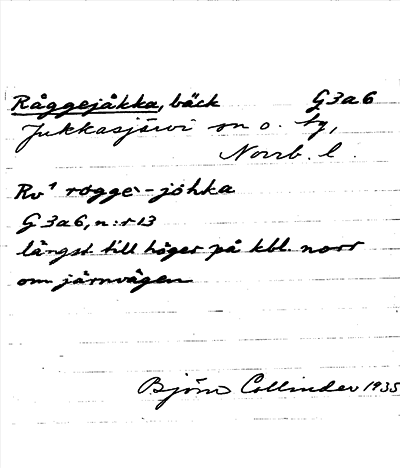 Råggejåkka, bäck G3a6
Jukkasjärvi sn o. tg,
Norrb. l.
Rv¹ rogge`-johka
G 3a6, n:r 13
längst till höger på kbl. norr
om järnvägen
Björn Collinder 1935